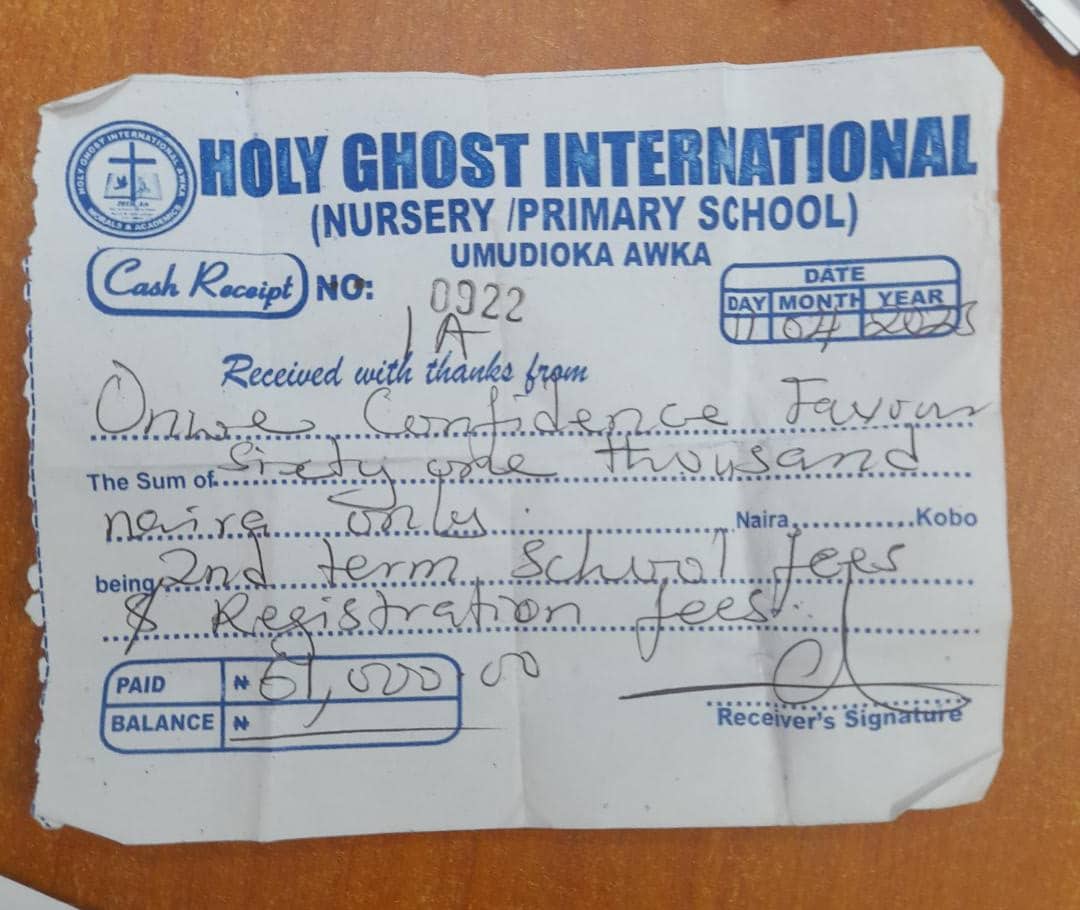 HOLY GHOST INTERNATIONAL AWKA
MORALS & ACADEMICS
HOLY GHOST INTERNATIONAL
(NURSERY /PRIMARY SCHOOL)
UMUDIOKA AWKA
Cash Receipt NO: 0922
1A
DATE
DAY MONTH YEAR
11 04 2025
Received with thanks from
Onwe Confidence Favour
The Sum of Sixty one thousand
naira only. Naira Kobo
being 2nd term School fees
& Registration fees.
PAID ₦ 61,000.00
BALANCE ₦
Receiver's Signature